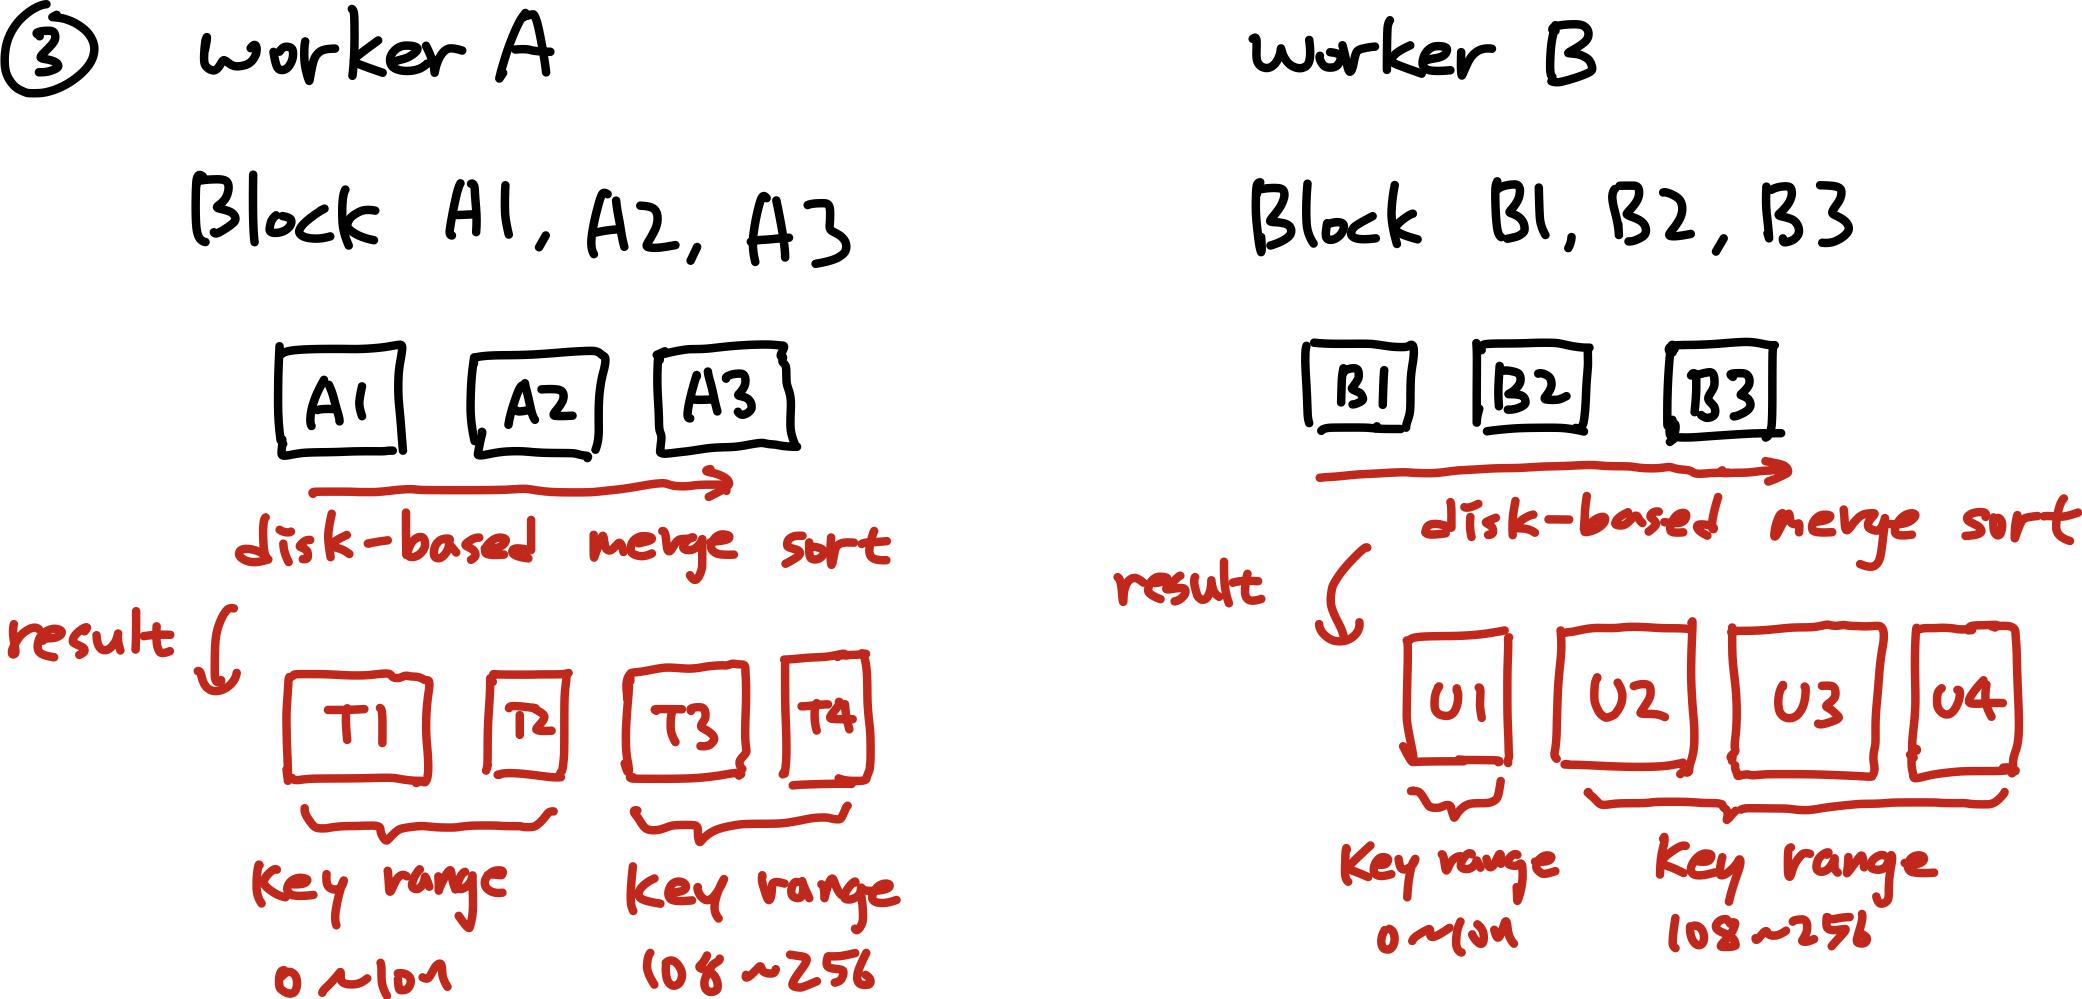 ③ worker A
Block A1, A2, A3
A1 A2 A3
disk-based merge sort
result
T1 T2 T3 T4
Key range
0~107
Key range
108~256
worker B
Block B1, B2, B3
B1 B2 B3
disk-based merge sort
result
U1 U2 U3 U4
Key range
0~107
Key range
108~256